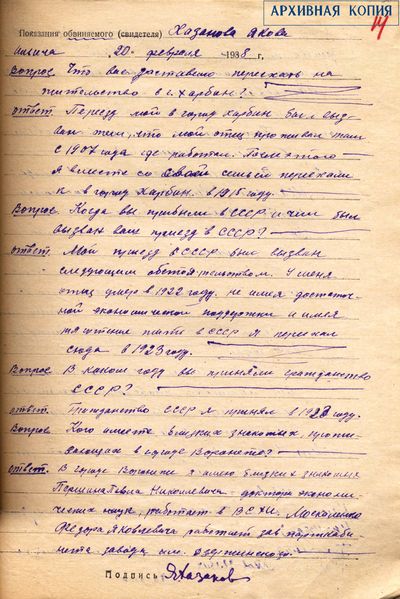 АРХИВНАЯ КОПИЯ
14
Показания обвиняемого (свидетеля) Хазанова Якова
Ильича 20 февраля 1938 г.
Вопрос Что вас заставило переехать на
жительство в г. Харбин?
ответ Переезд мой в город Харбин был выз-
ван тем, что мой отец проживал там
с 1907 года где работал. Поэтому
я вместе со своей семьей переехали
к в город Харбин в 1915 году.
Вопрос Когда вы прибыли в СССР и чем был
вызван ваш приезд в СССР?
ответ. Мой приезд в СССР был вызван
следующим обстоятельством. У меня
отец умер в 1922 году. не имея достаточ-
ной экономической поддержки и имея
жить в СССР я переехал
сюда в 1923 году.
Вопрос В каком году вы приняли гражданство
СССР?
ответ. Гражданство СССР я принял в 1923 году.
Вопрос Кого имеете близких знакомых, прожи-
вающих в городе Воронеже?
ответ. В городе Воронеже я имею близких знакомых
Павла Николаевича доктора экономи-
ческих наук, работает в ВСХИ, Москаленко
Федора Яковлевича работает зав. парткаби-
нета завода им. Дзержинского.
Подпись ЯХазанов